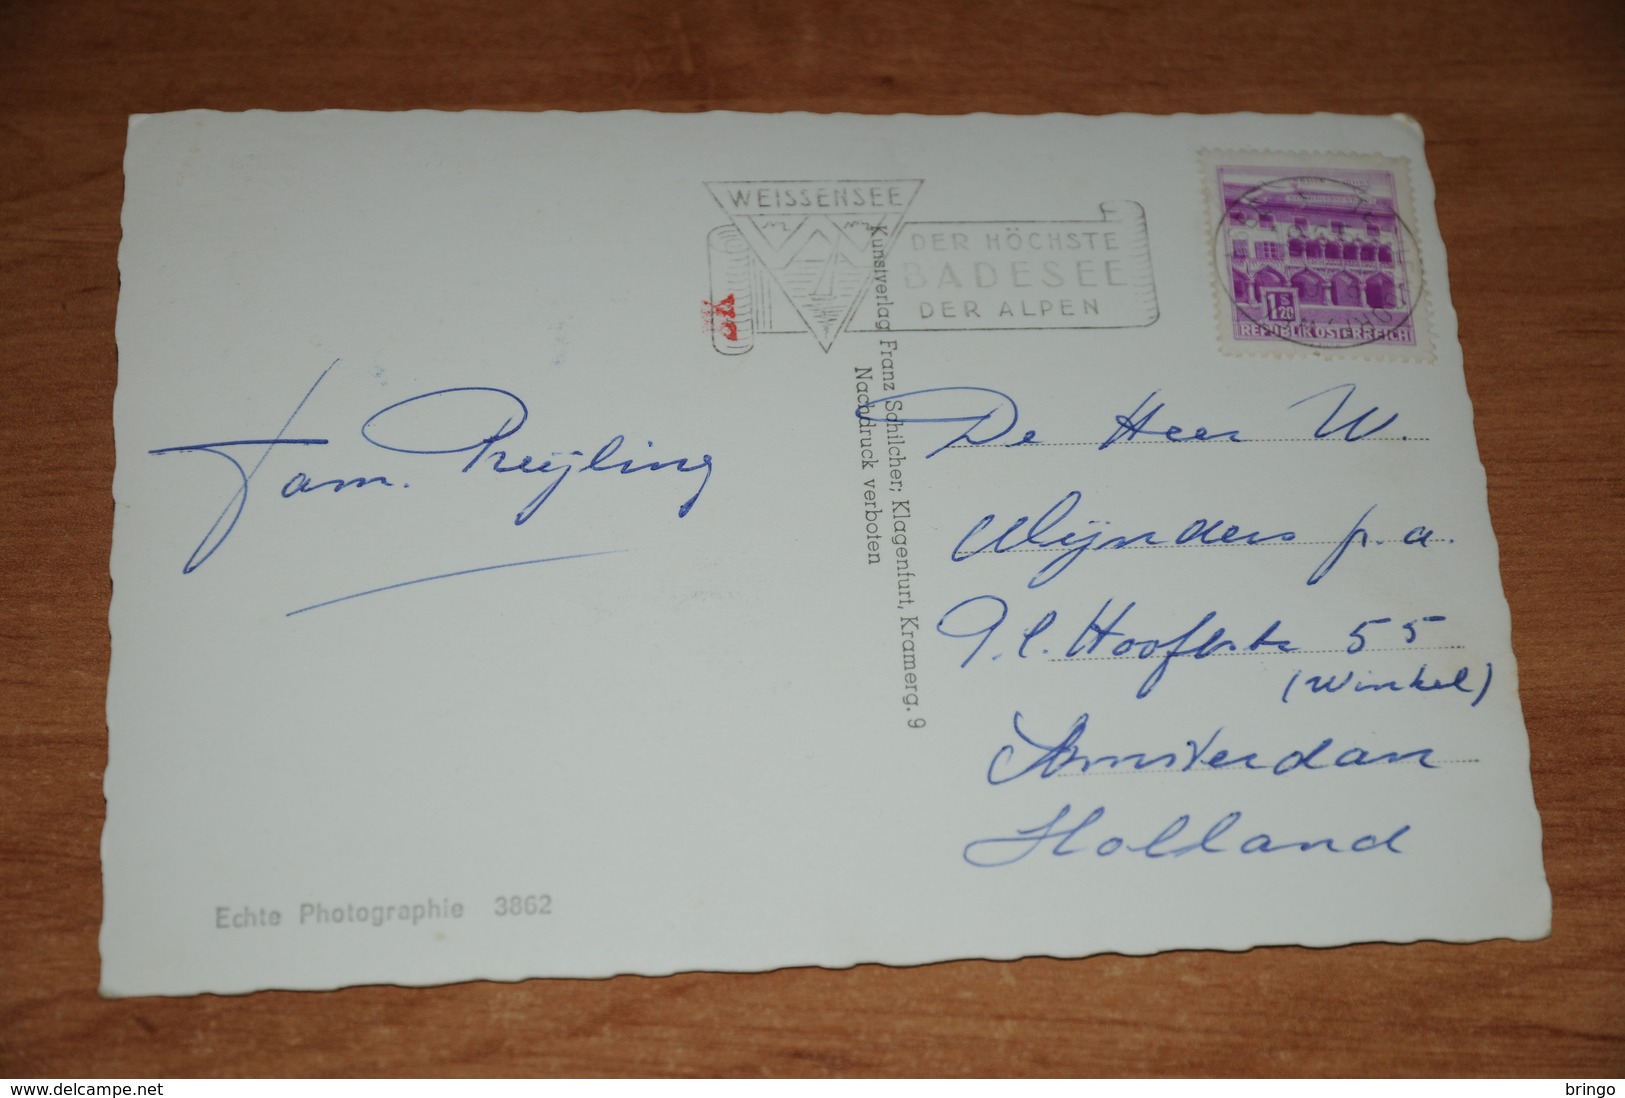 WEISSENSEE
DER HÖCHSTE
BADESEE
DER ALPEN
1 S 20
REPUBLIK ÖSTERREICH
Fam. Preÿling
Kunstverlag Franz Schilcher; Klagenfurt, Kramerg. 9
Nachdruck verboten
De Heer W.
Wÿnders p.a.
P.C. Hooftstr 55
(Winkel)
Amsterdam
Holland
Echte Photographie 3862
http://www.delcampe.net
bringo